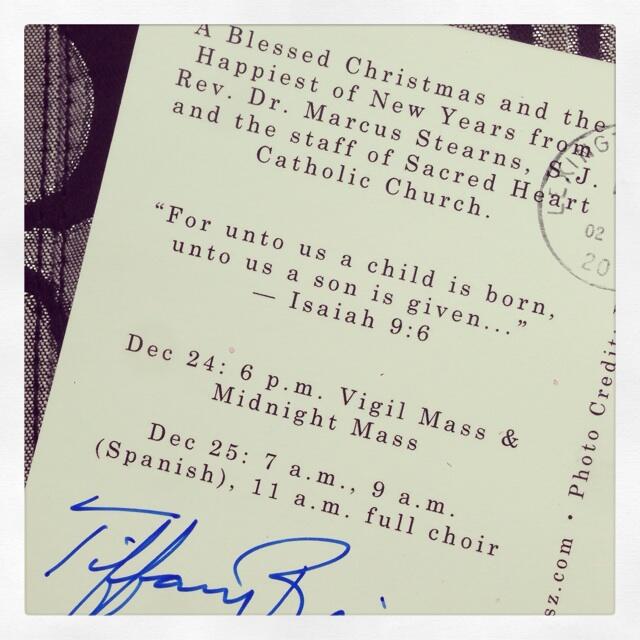 A Blessed Christmas and the
Happiest of New Years from
Rev. Dr. Marcus Stearns, S.J.
and the staff of Sacred Heart
Catholic Church.
“For unto us a child is born,
unto us a son is given...”
— Isaiah 9:6
Dec 24: 6 p.m. Vigil Mass &
Midnight Mass
Dec 25: 7 a.m., 9 a.m.
(Spanish), 11 a.m. full choir
Tiffany
LEXINGT
02
20
sz.com • Photo Credit